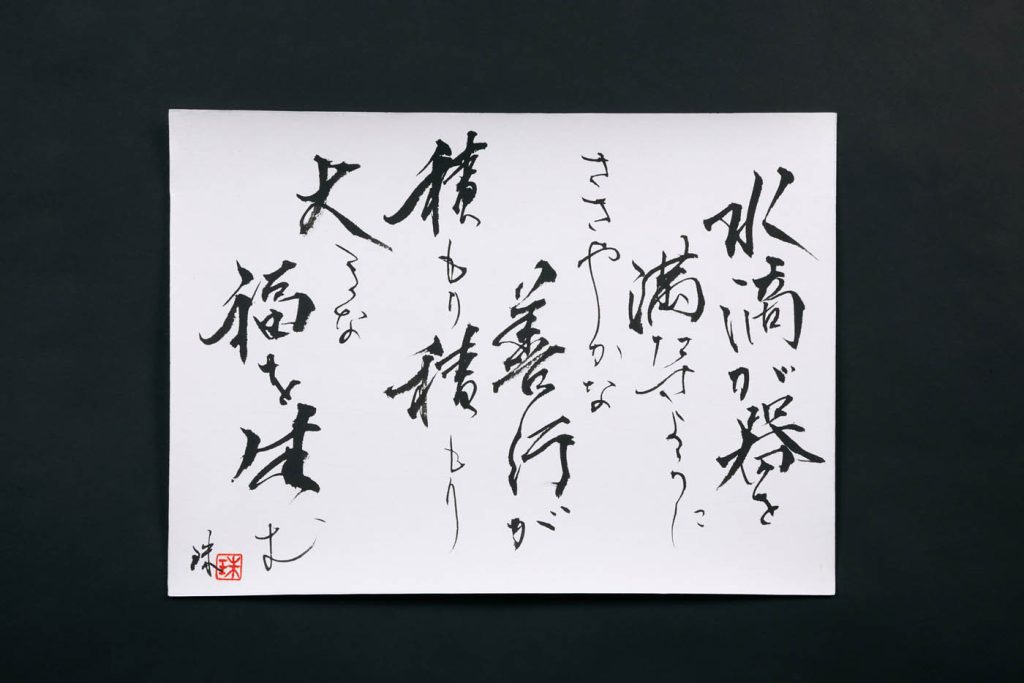 水滴が器を
満たすように
ささやかな
善行が
積もり積もり
大きな
福を生む
珠
珠